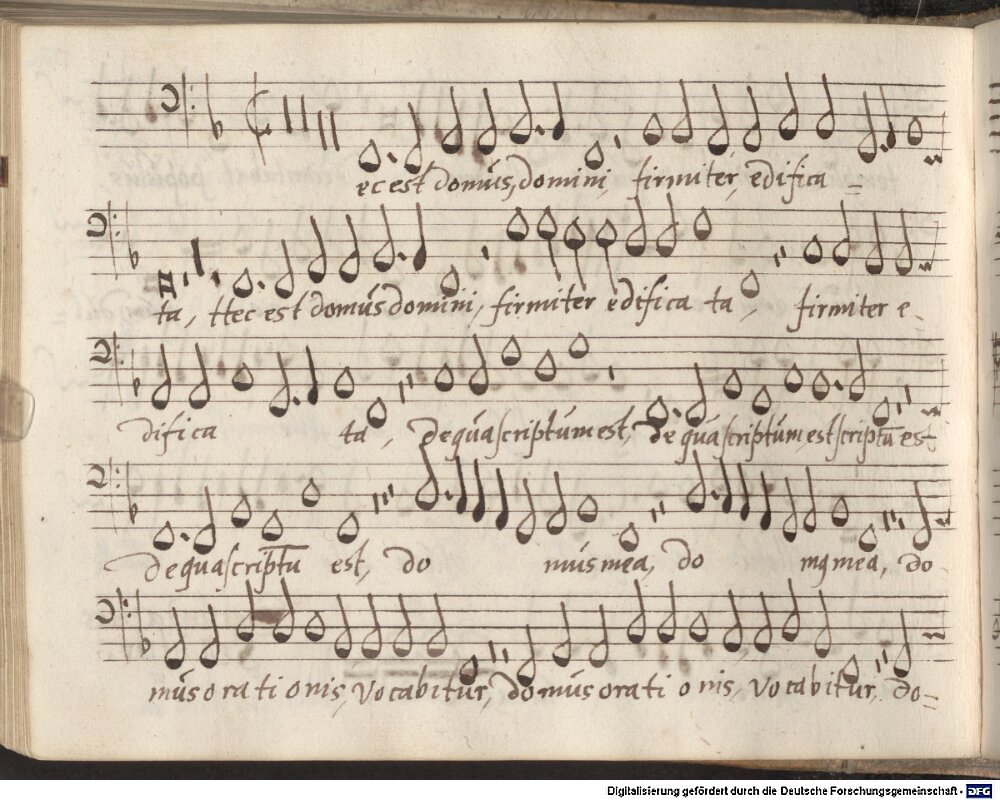 ec est domus, domini, firmiter edifica =
ta, Hec est domus domini, firmiter edifica ta, firmiter e-
difica ta, De qua scriptum est, de qua scriptum est scriptū est
de qua scriptū est, do mus mea, do mq mea, do
mus orationis, vocabitur, domus orationis, vocabitur, Do=
Digitalisierung gefördert durch die Deutsche Forschungsgemeinschaft - DFG